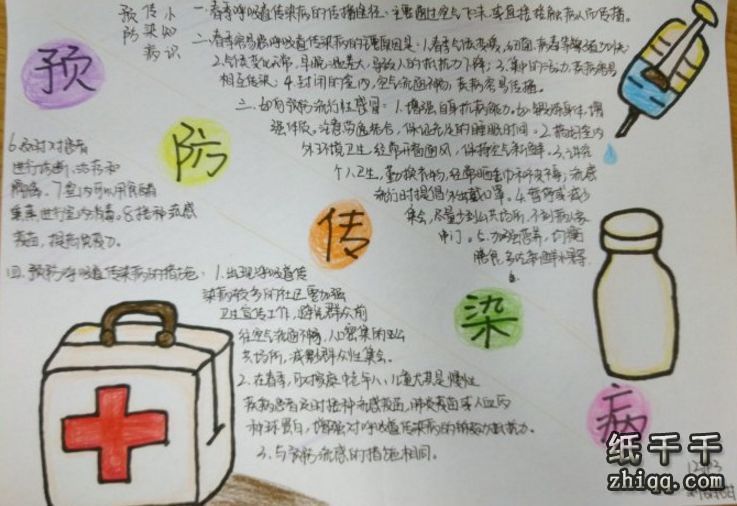 预传小
防染知
病识
预
防
传
染
病
一.春季呼吸道传染病的传播途径:主要通过空气飞沫,或直接接触病人而传播。
二.春季容易感呼吸道传染病的主要原因是:1.春季气候变暖,细菌,病毒等繁殖加快;
2.气候变化无常,早晚温差大,导致人的抵抗力下降;3.集中的活动,疾病容易
相互传染;4.封闭的室内,空气流通不畅,疾病容易传播。
三.如何预防流行性感冒:1.增强自身抗病能力。如锻炼身体,增
强体质。注意劳逸结合,保证充足的睡眠时间。2.搞好室内
外环境卫生,经常开窗通风,保持空气新鲜。3.讲究
个人卫生,勤换衣物,经常晒 流感
流行时提倡外出戴口罩。4.暂停或减少
集会,尽量少到公共场所,不到病人家
串门。5.加强营养,均衡
膳食,多吃新鲜水果。
6.及时对患者
进行诊断、治疗和
隔离。7.室内可以用食醋
熏蒸进行室内消毒。8.接种流感
疫苗,提高免疫力。
四.预防呼吸道传染病的措施:1.出现呼吸道传
染病较多的社区要加强
卫生宣传工作, 群众前
往空气流通不畅,人口密集的公
共场所,减少群众性集会。
2.在春季,可对 老年人、儿童尤其是慢性
疾病患者及时接种流感疫苗,肺炎疫苗或人血丙
种球蛋白,增强对呼吸道传染病的 抵抗力。
3.与预防流感的措施相同。
纸千千
zhiqq.com